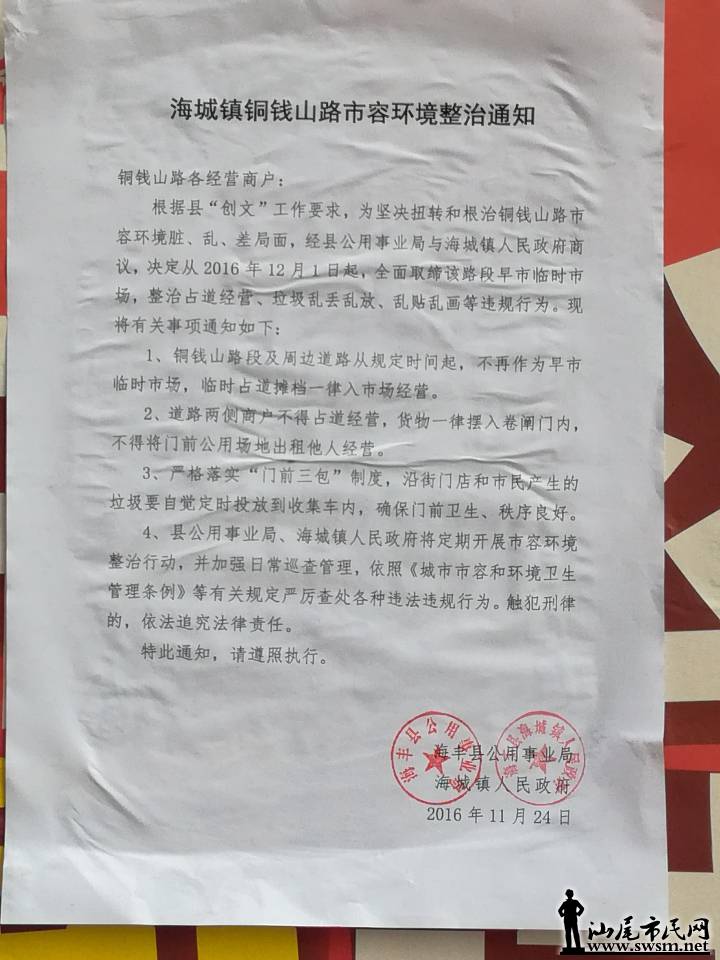 海城镇铜钱山路市容环境整治通知
铜钱山路各经营商户：
根据县“创文”工作要求，为坚决扭转和根治铜钱山路市
容环境脏、乱、差局面，经县公用事业局与海城镇人民政府商
议，决定从2016年12月1日起，全面取缔该路段早市临时市
场，整治占道经营、垃圾乱丢乱放、乱贴乱画等违规行为。现
将有关事项通知如下：
1、铜钱山路段及周边道路从规定时间起，不再作为早市
临时市场，临时占道摊档一律入市场经营。
2、道路两侧商户不得占道经营，货物一律摆入卷闸门内，
不得将门前公用场地出租他人经营。
3、严格落实“门前三包”制度，沿街门店和市民产生的
垃圾要自觉定时投放到收集车内，确保门前卫生、秩序良好。
4、县公用事业局、海城镇人民政府将定期开展市容环境
整治行动，并加强日常巡查管理，依照《城市市容和环境卫生
管理条例》等有关规定严厉查处各种违法违规行为。触犯刑律
的，依法追究法律责任。
特此通知，请遵照执行。
海丰县公用事业局
海丰县公用事业局
海丰县海城镇人民政府
海城镇人民政府
2016年11月24日
汕尾市民网
www.swsm.net